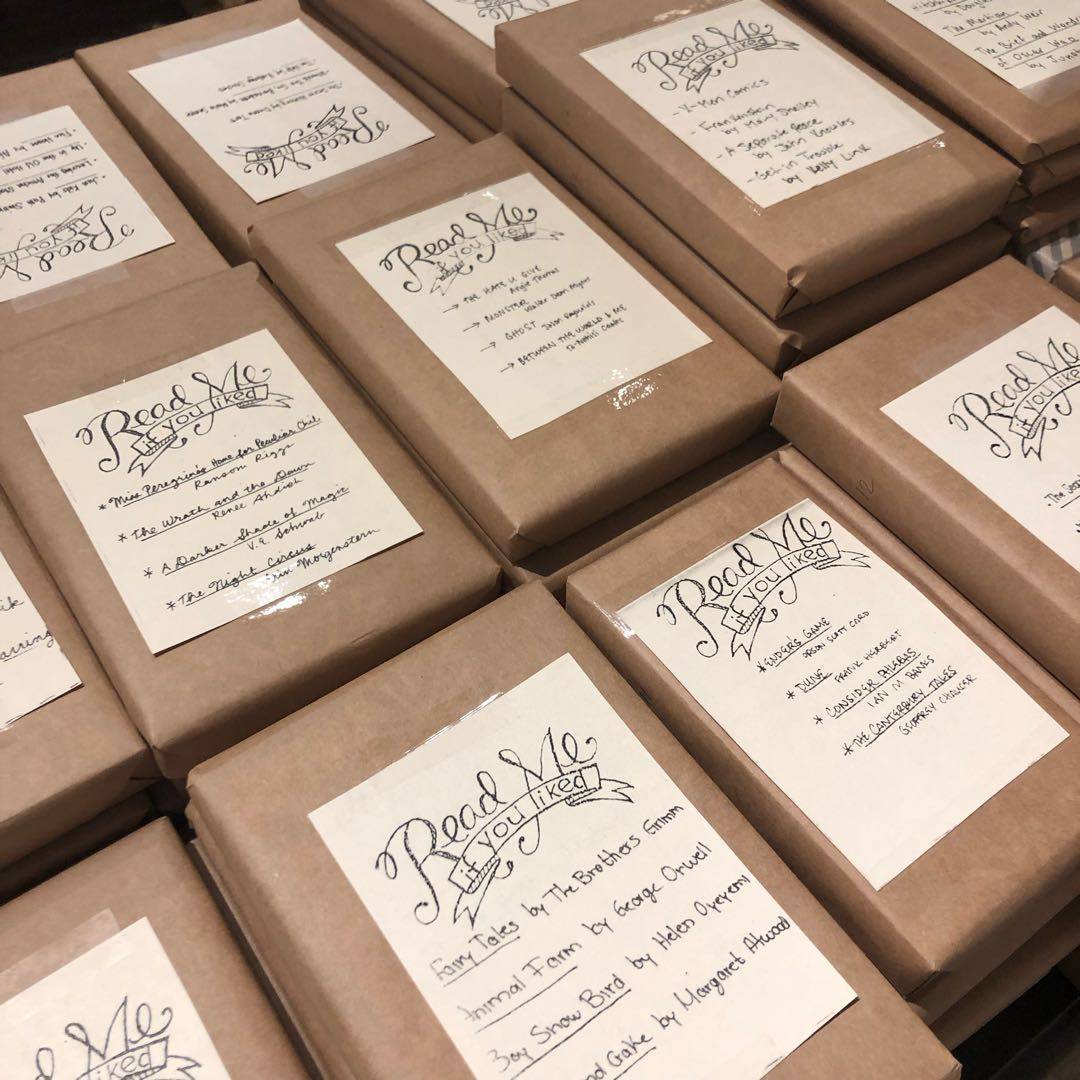 Read Me
if you liked
- X-Men Comics
- Frankenstein
by Mary Shelley
- A Separate Peace
by John Knowles
- Get in Trouble
by Kelly Link
The Martian
by Andy Weir
The Brief and
of Oscar Wao
by Junot
Read Me
if you liked
Read Me
if you liked
Read Me
if you liked
→ THE HATE U GIVE
Angie Thomas
→ MONSTER
Walter Dean Myers
→ GHOST Jason Reynolds
→ BETWEEN THE WORLD & ME
Ta-Nehisi Coates
Read Me
if you liked
* Miss Peregrine's Home for Peculiar Chil.
Ransom Riggs
* The Wrath and the Dawn
Renée Ahdieh
* A Darker Shade of Magic
V.E. Schwab
* The Night Circus
Erin Morgenstern
Read Me
if you liked
* ENDER'S GAME
ORSON SCOTT CARD
* DUNE
FRANK HERBERT
* CONSIDER PHLEBAS
IAN M BANKS
* THE CANTERBURY TALES
GEOFFREY CHAUCER
Read Me
if you liked
12
Read Me
if you liked
Fairy Tales by The Brothers Grimm
Animal Farm by George Orwell
Boy Snow Bird by Helen Oyeyemi
by Margaret Atwood
Me
liked